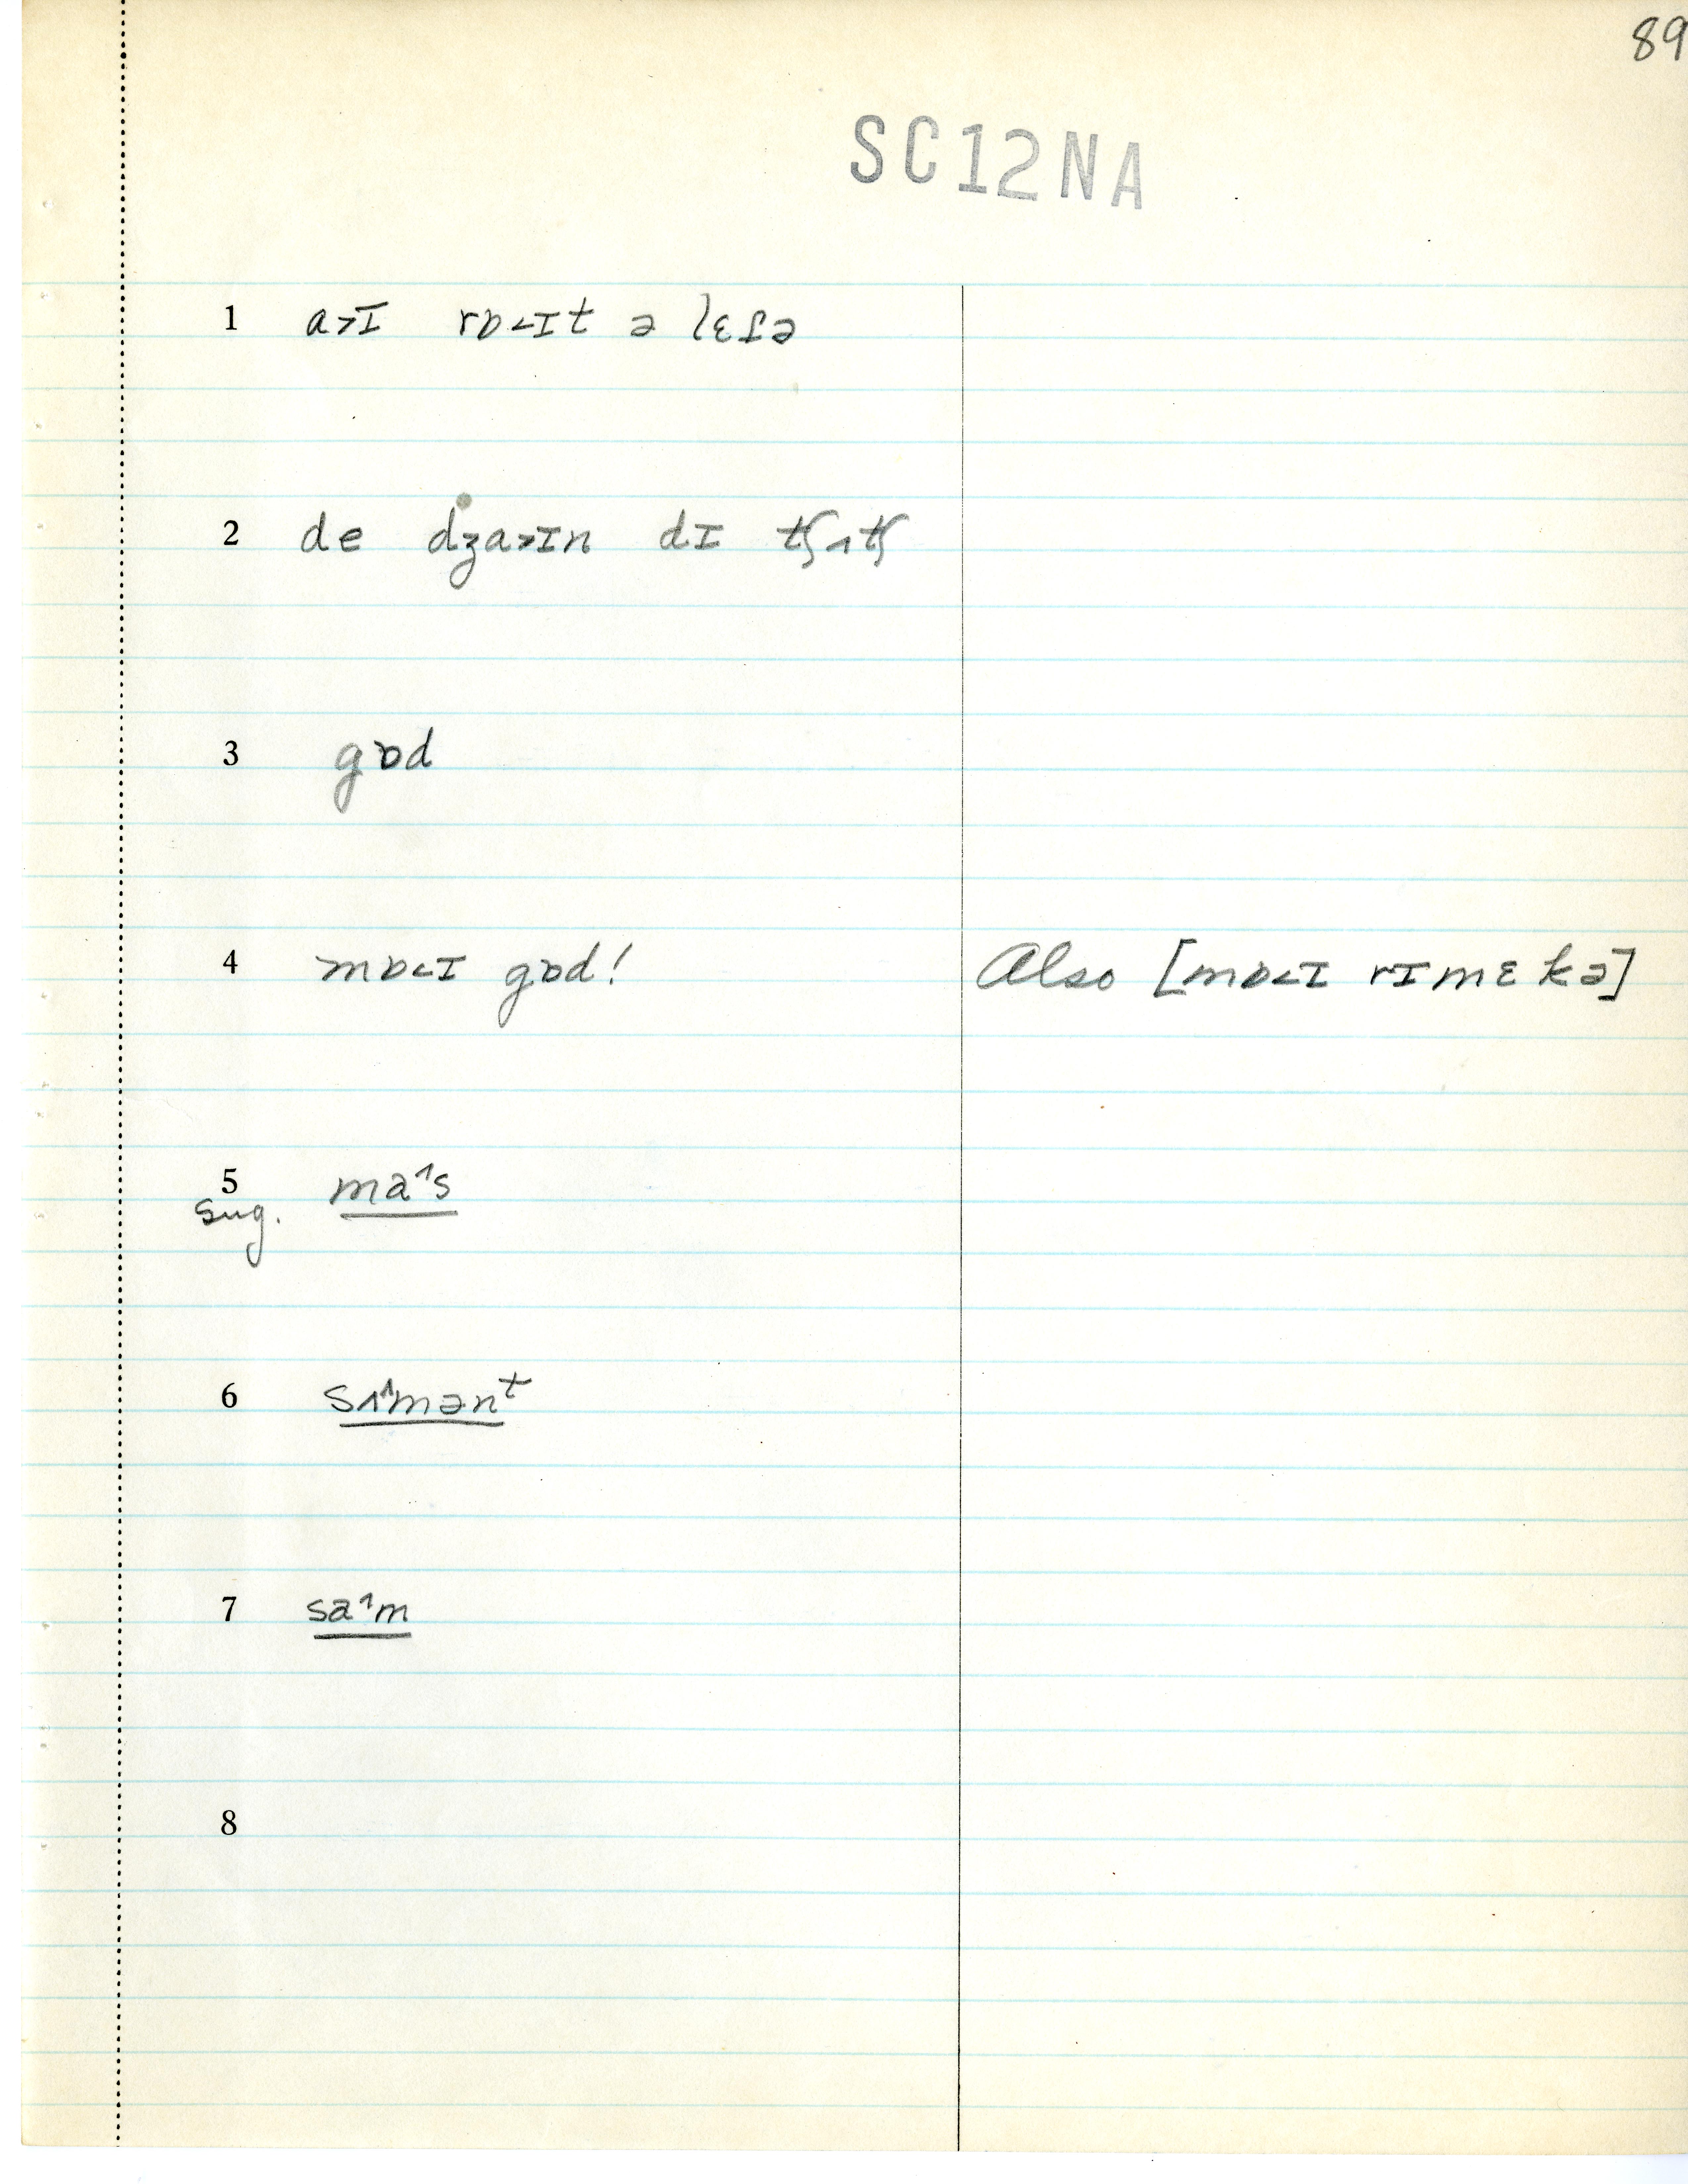 89
SC12NA
1 a>ɪ rɒ<ɪt ə lɛfə
2 de dʒa>ɪn dɪ tʃʌtʃ
3 gɒd
4 mɒ<ɪ gɒd! Also [mɒ<ɪ rɪmɛkə]
5 ma^s
sug.
6 sʌ^mənᵗ
7 sa^m
8